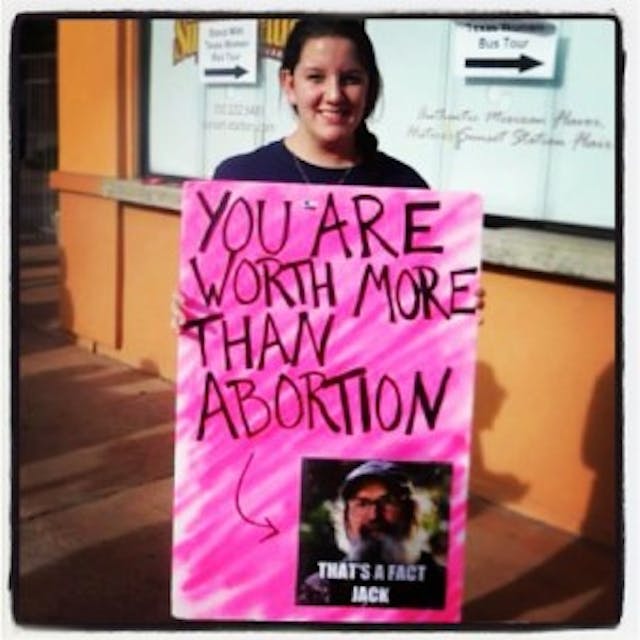 Stand With
Texas Women
Bus Tour
Texas Women
Bus Tour
Authentic Mexican Flavor,
YOU ARE
WORTH MORE
THAN
ABORTION
THAT'S A FACT
JACK